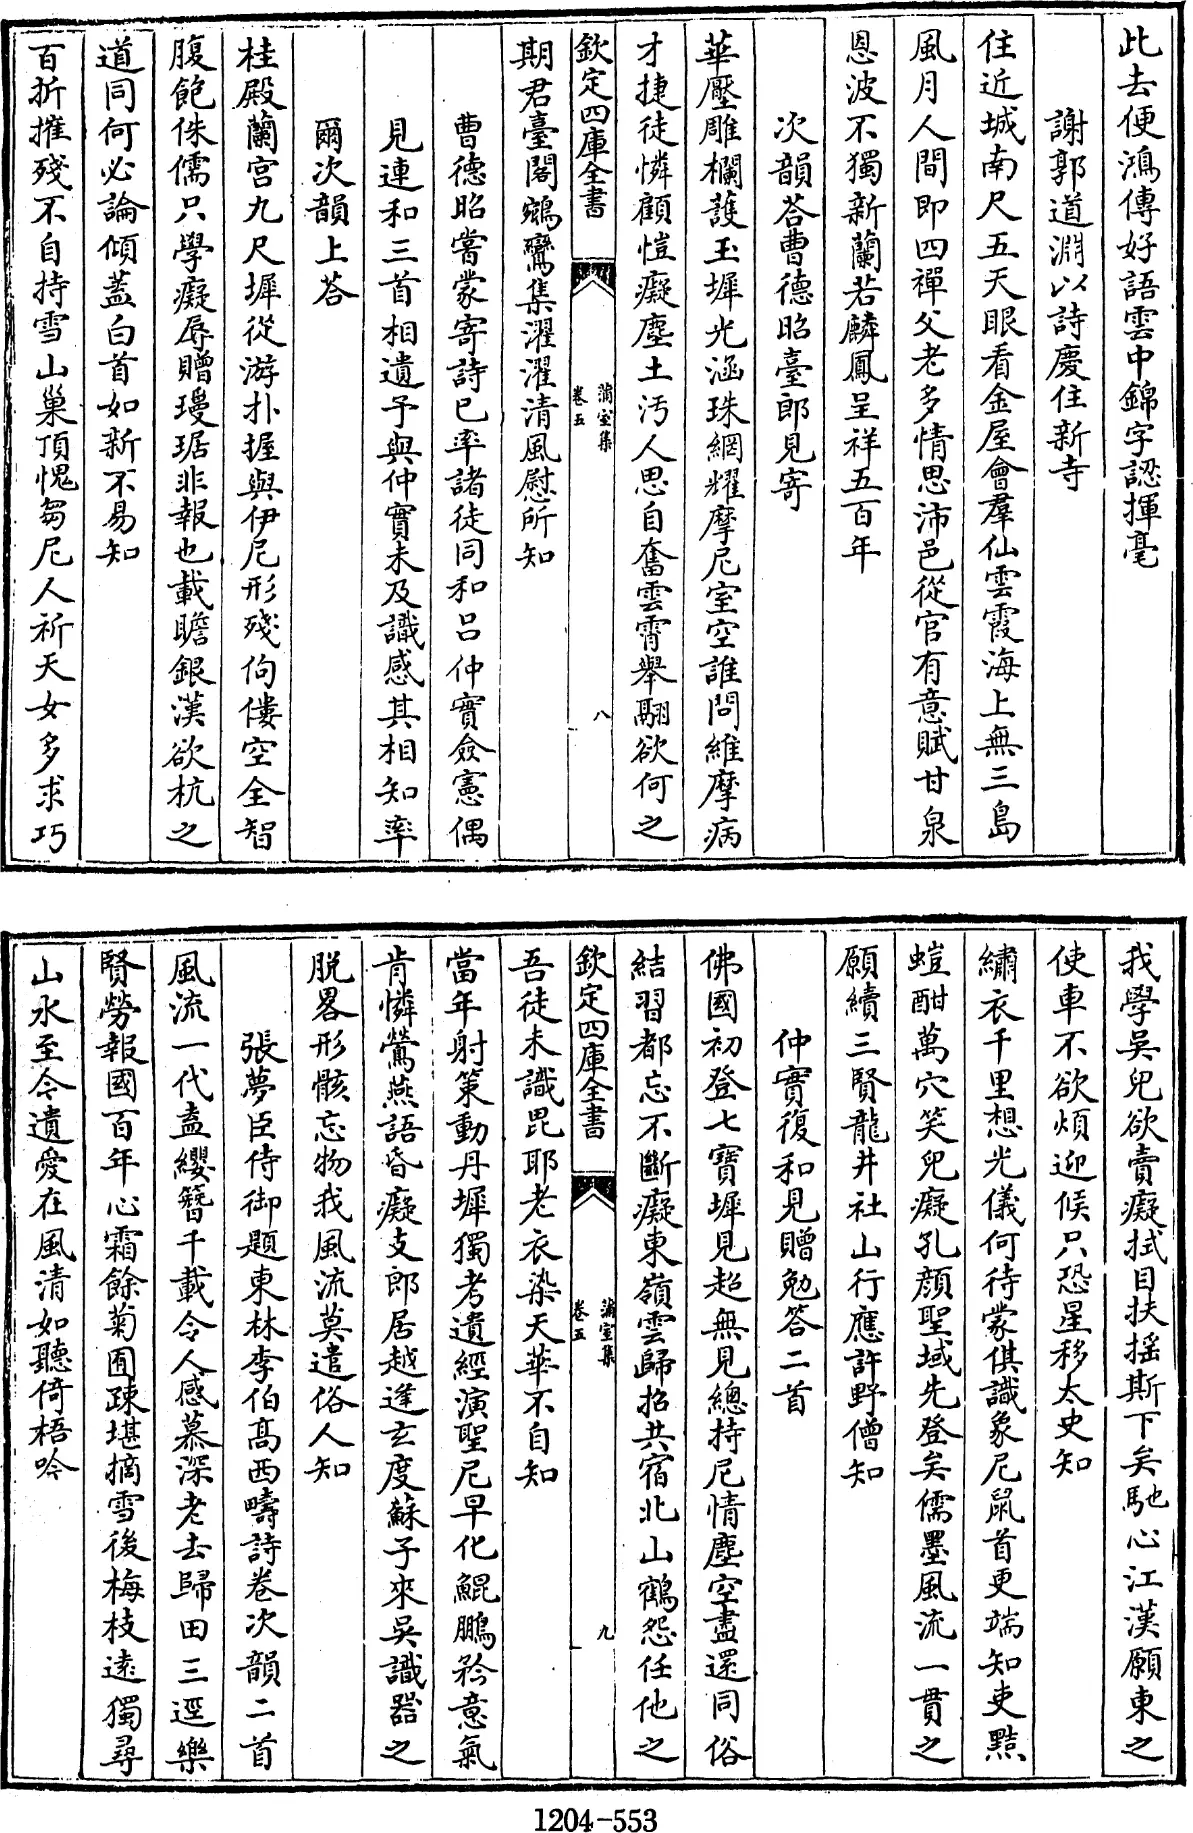 此去便鴻傳好語雲中錦字認揮毫
謝郭道淵以詩慶住新寺
住近城南尺五天眼看金屋會羣仙雲霞海上無三島
風月人間即四禪父老多情思沛邑從官有意賦甘泉
恩波不獨新蘭若麟鳳呈祥五百年
次韻答曹德昭臺郎見寄
華壓雕欄護玉墀光涵珠網耀摩尼室空誰問維摩病
才捷徒憐顧愷癡塵土汚人思自奮雲霄舉翮欲何之
欽定四庫全書
蒲室集
卷五
八
期君臺閣鵷鸞集濯濯清風慰所知
曹德昭嘗蒙寄詩已率諸徒同和呂仲實僉憲偶
見連和三首相遺予與仲實未及識感其相知率
爾次韻上答
桂殿蘭宮九尺墀從游扑握與伊尼形殘佝僂空全智
腹飽侏儒只學癡辱贈瓊琚非報也載瞻銀漢欲杭之
道同何必論傾蓋白首如新不易知
百折摧殘不自持雪山巢頂愧芻尼人祈天女多求巧
我學吳兒欲賣癡拭目扶摇斯下矣馳心江漢願東之
使車不欲煩迎候只恐星移太史知
繡衣千里想光儀何待蒙倛識象尼鼠首更端知吏黠
螘酣萬穴笑兒癡孔顔聖域先登矣儒墨風流一貫之
願續三賢龍井社山行應許野僧知
仲實復和見贈勉答二首
佛國初登七寶墀見超無見總持尼情塵空盡還同俗
結習都忘不斷癡東嶺雲歸招共宿北山鶴怨任他之
欽定四庫全書
蒲室集
卷五
九
吾徒未識毘耶老衣染天華不自知
當年射策動丹墀獨考遺經演聖尼早化鯤鵬矜意氣
肯憐鶯燕語昏癡支郎居越逢玄度蘇子來吳識器之
脱畧形骸忘物我風流莫遣俗人知
張夢臣侍御題東林李伯髙西疇詩卷次韻二首
風流一代盍纓簪千載令人感慕深老去歸田三逕樂
賢勞報國百年心霜餘菊圃疎堪摘雪後梅枝遠獨尋
山水至今遺愛在風清如聽倚梧吟
1204-553